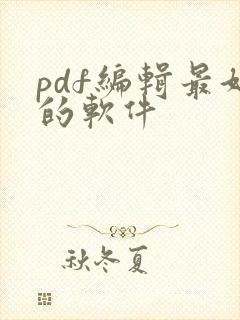 pdf編輯最好
的軟件
秋冬夏